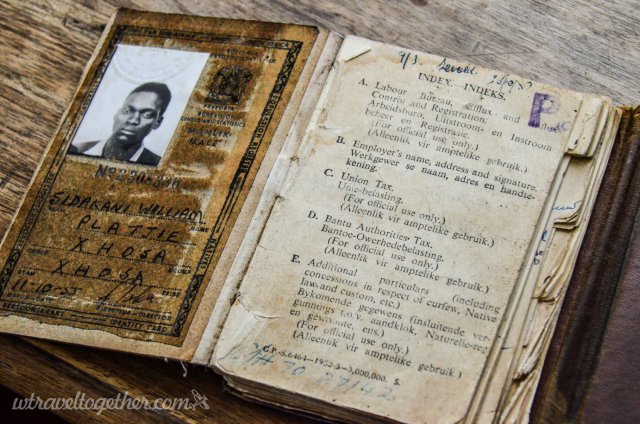 MANLIK
MALE
SIDAKANI WILLIAM
PLATTIE
XHOSA
XHOSA
11-10-
PERSOONSKAART
IDENTITY CARD
INDEX.—INDEKS.
P
A. Labour Bureau, Efflux and Influx
Control and Registration.
Arbeidsburo, Uitstroom- en Instroom
beheer en Registrasie.
(For official use only.)
(Alleenlik vir amptelike gebruik.)
B. Employer's name, address and signature.
Werkgewer se naam, adres en handte-
kening.
C. Union Tax.
Unie-belasting.
(For official use only.)
(Alleenlik vir amptelike gebruik.)
D. Bantu Authorities Tax.
Bantoe-Owerhedebelasting.
(For official use only.)
(Alleenlik vir amptelike gebruik.)
E. Additional particulars (including
concessions in respect of curfew, Native
law and custom, etc.)
Bykomende gegewens (insluitende ver-
gunnings i.o.v. aandklok, Naturelle-reg
en gewoonte, ens.)
(For official use only.)
(Alleenlik vir amptelike gebruik.)
wtraveltogether.com